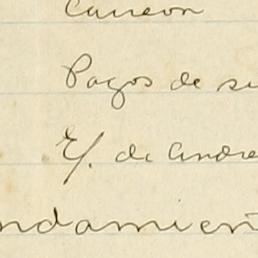 Carreon
Pagos de su
E/. de Andre
ndamient